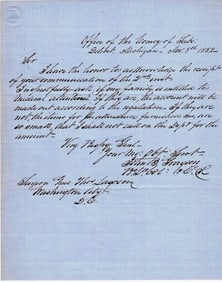 Office of the Survey of the
Detroit Michigan - Nov. 8th 1852.
Sir
I have the honor to acknowledge the receipt
of your communication of the 2nd inst.
I respectfully note if my family is entitled to
medical attendance. If they are, the account will be
made out according to the regulation. If they are
not the items for the attendance furnished me, are
so small, that I shall not call on the Dept for the
amount.
Very Respy Genl
Your Mo: Obt Servt
Surgeon Genl Tho: Lawson
Washington City
D.C.